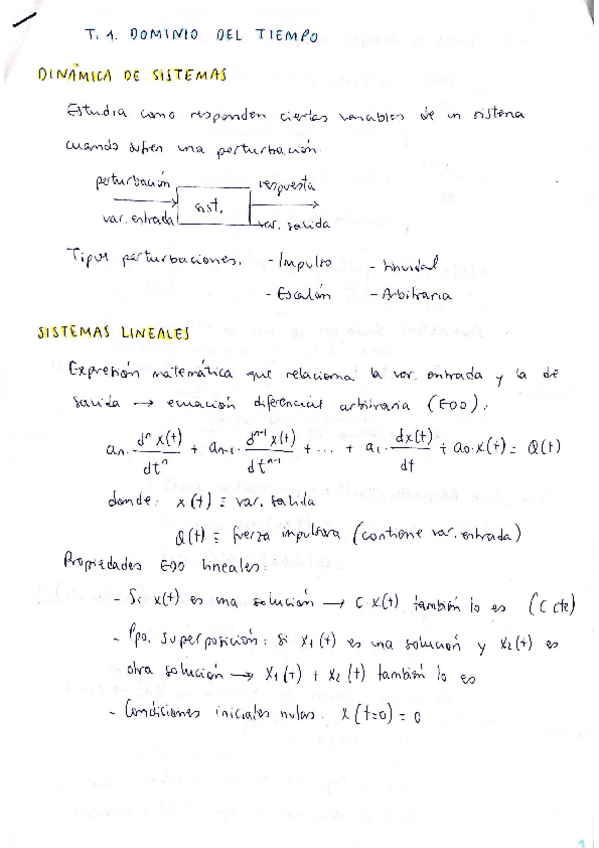 T. 1. DOMINIO DEL TIEMPO
DINÁMICA DE SISTEMAS
Estudia como responden ciertas variables de un sistema
cuando sufren una perturbación.
perturbación
respuesta
sist.
var. entrada
var. salida
Tipos perturbaciones. - Impulso - Sinusidal
- Escalón - Arbitraria
SISTEMAS LINEALES
Expresión matemática que relaciona la var. entrada y la de
salida → ecuación diferencial arbitraria (EDO):
an · d^n x(t)/dt^n + an-1 · d^n-1 x(t)/dt^n-1 + ... + a1 · dx(t)/dt + a0 · x(t) = Q(t)
donde: x(t) ≡ var. salida
Q(t) ≡ fuerza impulsora (contiene var. entrada)
Propiedades EDO lineales:
- Si x(t) es una solución → C · x(t) también lo es (C cte)
- Ppo. Superposición: si x1(t) es una solución y x2(t) es
otra solución → x1(t) + x2(t) también lo es
- Condiciones iniciales nulas: x(t=0) = 0
1